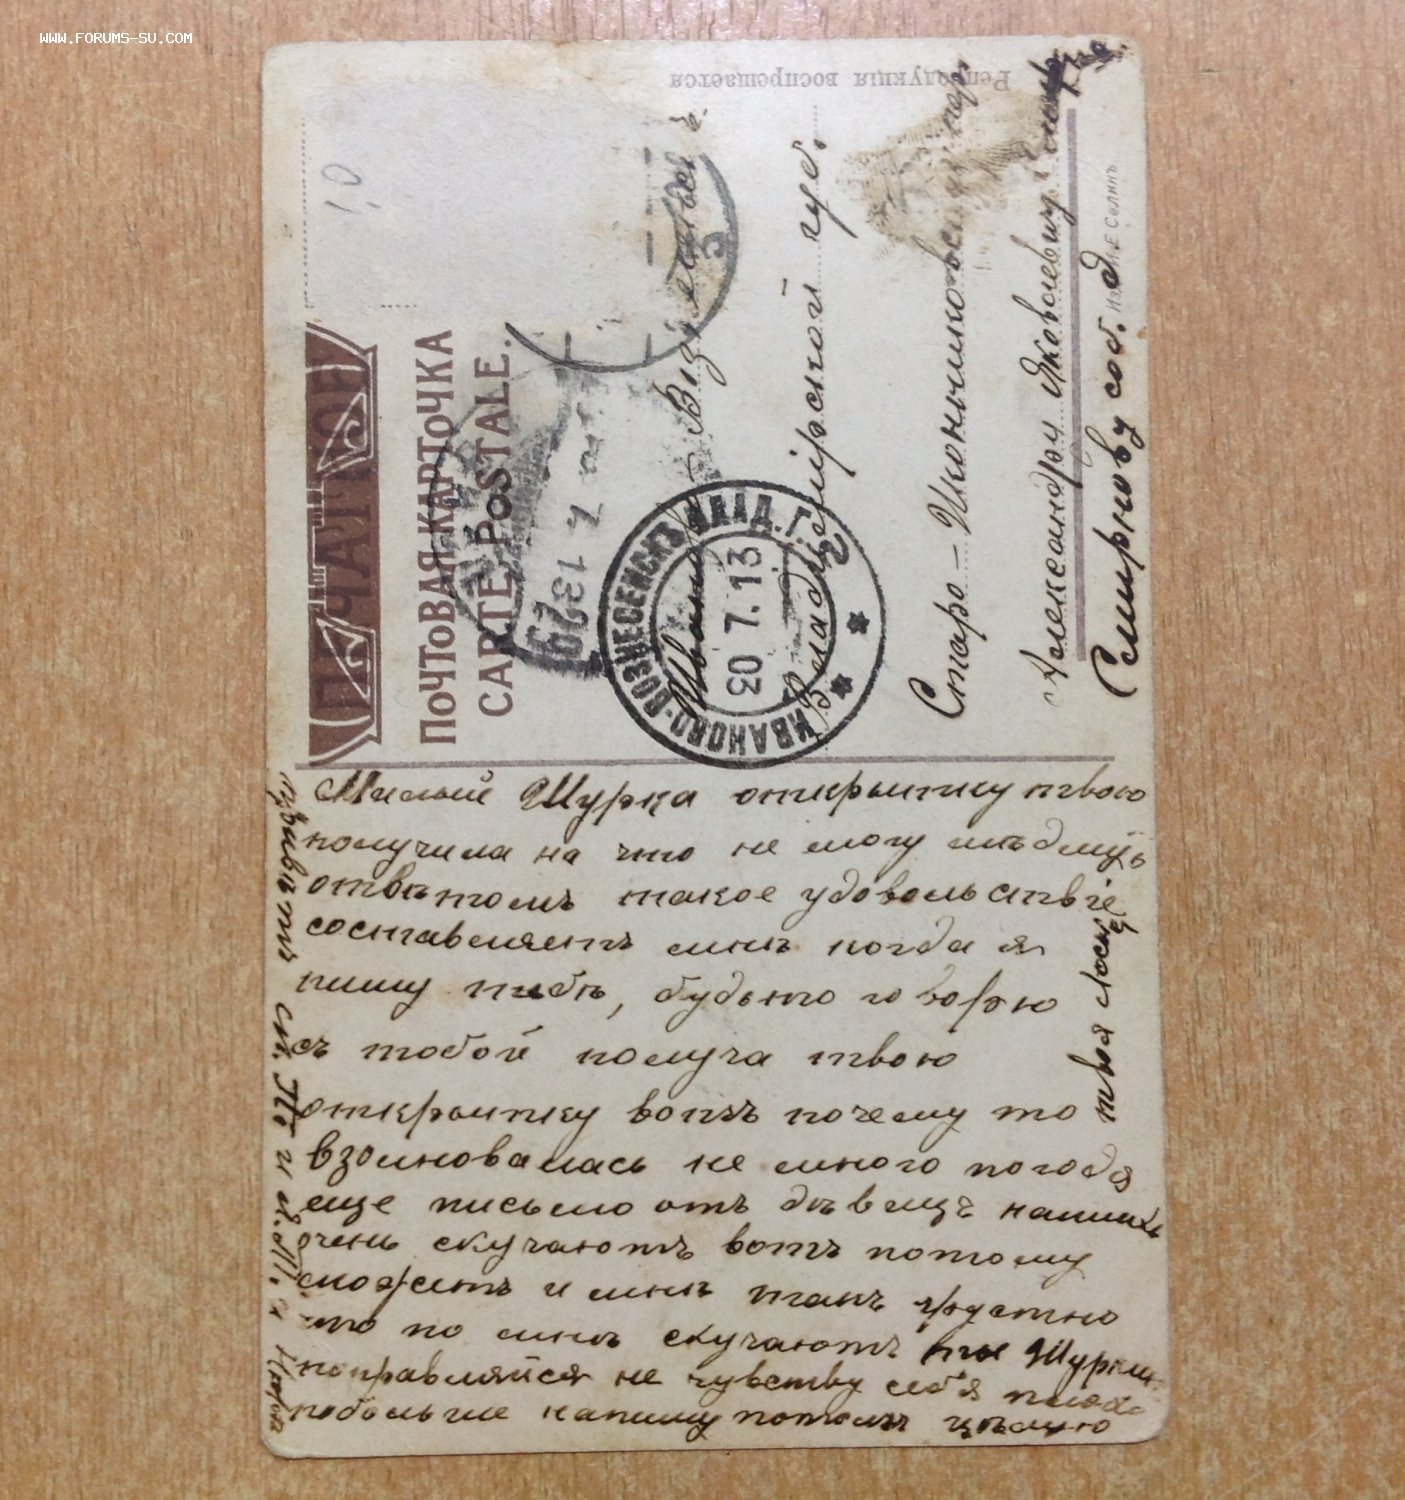 WWW.FORUMS-SU.COM
Репродукція воспрещается
ПЕЧАТНОЕ
ПОЧТОВАЯ КАРТОЧКА
CARTE POSTALE.
29 7 13
ИВАНОВО-ВОЗНЕСЕНСКЪ ВЛАД. Г.
30 7. 13
Иваново
Владимірской губ.
Старо-Иконниковскій пер
Александру Яковлевичу
Смирнову соб. д
Милый Шурка открытку твою
получила на что не могу
отвѣтомъ такое удовольствіе
составляетъ мнѣ когда я
пишу тебѣ, будьто говорю
съ тобой получа твою
открытку вотъ почему то
взолновалась не много погодя
еще письмо отъ наших
очень скучаютъ вотъ потому
можетъ и мнѣ такъ грустно
что по мнѣ скучаютъ ты
поправляйся не чувству себя плохо
побольше напишу потомъ цѣлую
твоя
привѣтъ